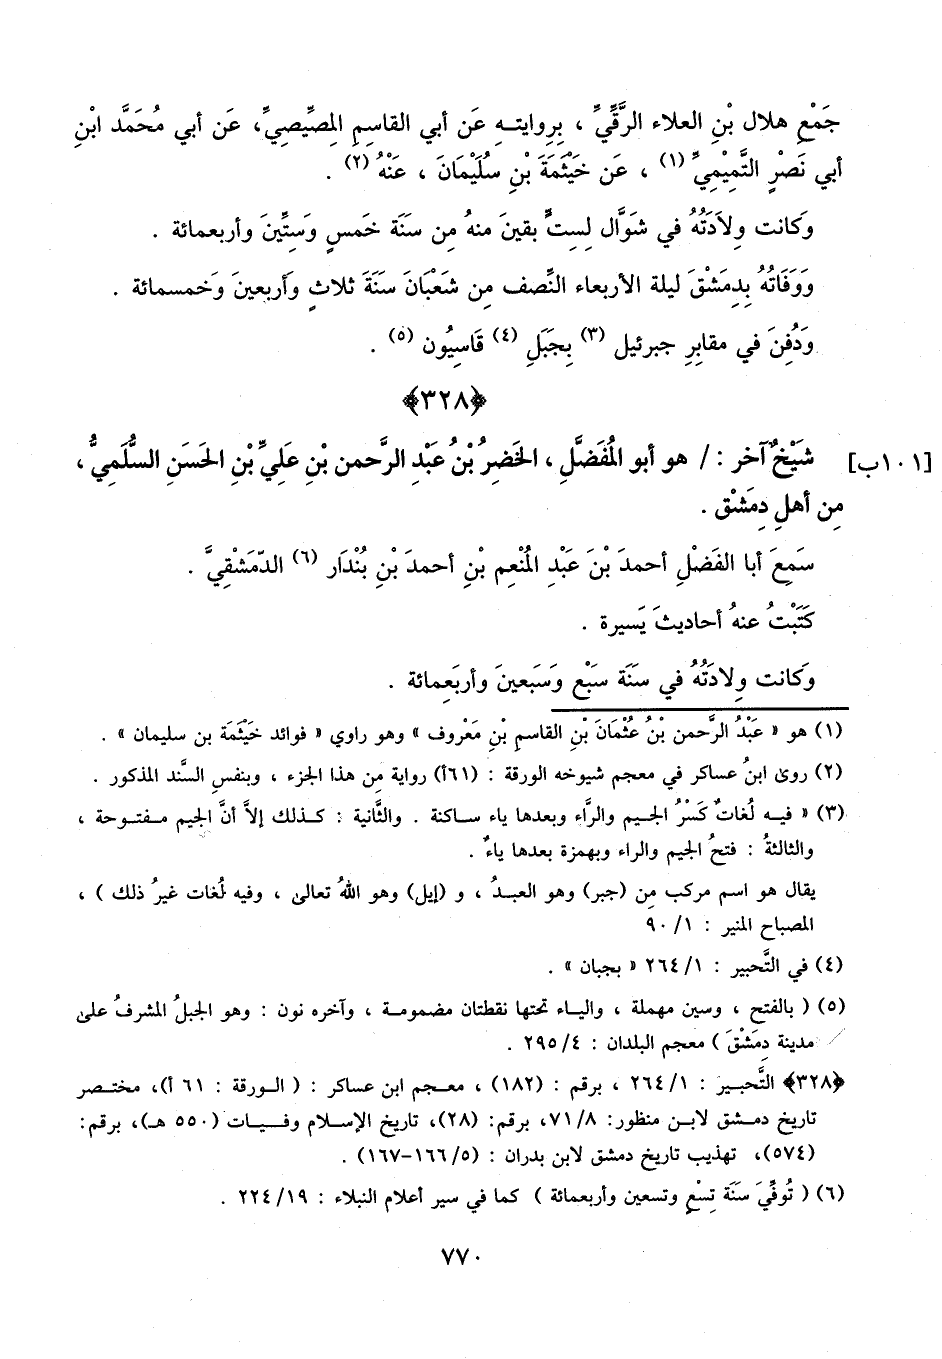 جَمْعِ هلال بْنِ العلاء الرَّقِّيِّ ، بِروايتـهِ عَن أبي القاسِمِ المِصِّيصِيِّ، عَن أبي مُحَمَّد ابْنِ
أبي نَصْرٍ التَّمِيْمِيِّ (١) ، عَن خَيْثَمَةَ بْنِ سُلَيْمَانَ ، عَنْهُ (٢) .
وَكانت وِلاَدَتُهُ في شَوَّال لِسِتٍّ بقينَ منهُ مِن سَنَة خَمسٍ وَستِّينَ وأربعمائة .
وَوَفَاتُهُ بِدِمَشْقَ ليلة الأربعاء النِّصف مِن شَعْبَانَ سَنَةَ ثلاثٍ وأربَعينَ وَخمسمائة .
وَدُفِنَ في مقابِرِ جبرئيل (٣) بِجَبَلِ (٤) قَاسِيُون (٥) .
﴿٣٢٨﴾
[١٠١ب] شَيْخٌ آخر : / هو أبو المُفَضَّلِ ، الخَضِرُ بْنُ عَبْدِ الرَّحمن بْنِ عَلِيِّ بْنِ الحَسَنِ السُّلَمِيُّ ،
مِن أهلِ دِمَشْق .
سَمِعَ أبا الفَضْلِ أحمدَ بْنَ عَبْدِ المُنْعِم بْنِ أحمدَ بْنِ بُنْدَار (٦) الدِّمَشْقِيَّ .
كَتَبْتُ عنهُ أحاديثَ يَسيرة .
وَكانت وِلادَتُهُ في سَنَة سَبْع وَسَبعينَ وأربَعِمائة .
(١) هو « عَبْدُ الرَّحمن بْنُ عُثْمَانَ بْنِ القاسِمِ بْنِ مَعْروف » وهو راوي « فوائد خَيْثَمَة بن سليمان » .
(٢) روىٰ ابنُ عساكر في معجم شيوخه الورقة : (٦١أ) رواية مِن هذا الجزء ، وبنفس السَّند المذكور .
(٣) « فيـه لُغاتٌ كَسْرُ الجـيم والرَّاء وبعدها ياء سـاكنة . والثَّانية : كـذلك إلاَّ أنَّ الجيم مـفتـوحة ،
والثالثةُ : فتحُ الجيم والراء وبهمزة بعدها ياءٌ .
يقال هو اسم مركب مِن (جبر) وهو العبـدُ ، و (إيل) وهو اللهُ تعالىٰ ، وفيه لُغات غيرُ ذلك ) ،
المصباح المنير : ٩٠/١
(٤) في التَّحبير : ٢٦٤/١ « بجبان » .
(٥) ( بالفتح ، وسين مهملة ، واليـاء تحتها نقطتان مضمومـة ، وآخره نون : وهو الجبلُ المشرفُ علىٰ
مدينة دِمَشْقَ ) معجم البلدان : ٢٩٥/٤ .
﴿٣٢٨﴾ التَّحبـير : ٢٦٤/١ ، برقم : (١٨٢) ، معـجم ابن عساكر : ( الـورقة : ٦١ أ)، مختـصر
تاريخ دمـشق لابـن منظور: ٧١/٨، برقم: (٢٨)، تاريخ الإسـلام وفـيـات (٥٥٠ هـ)، برقم:
(٥٧٤)، تهذيب تاريخ دمشق لابن بدران : (١٦٦/٥-١٦٧) .
(٦) ( تُوفِّيَ سَنَة تِسْعٍ وتسعين وأربعمائة ) كما في سير أعلام النبلاء : ٢٢٤/١٩ .
٧٧٠